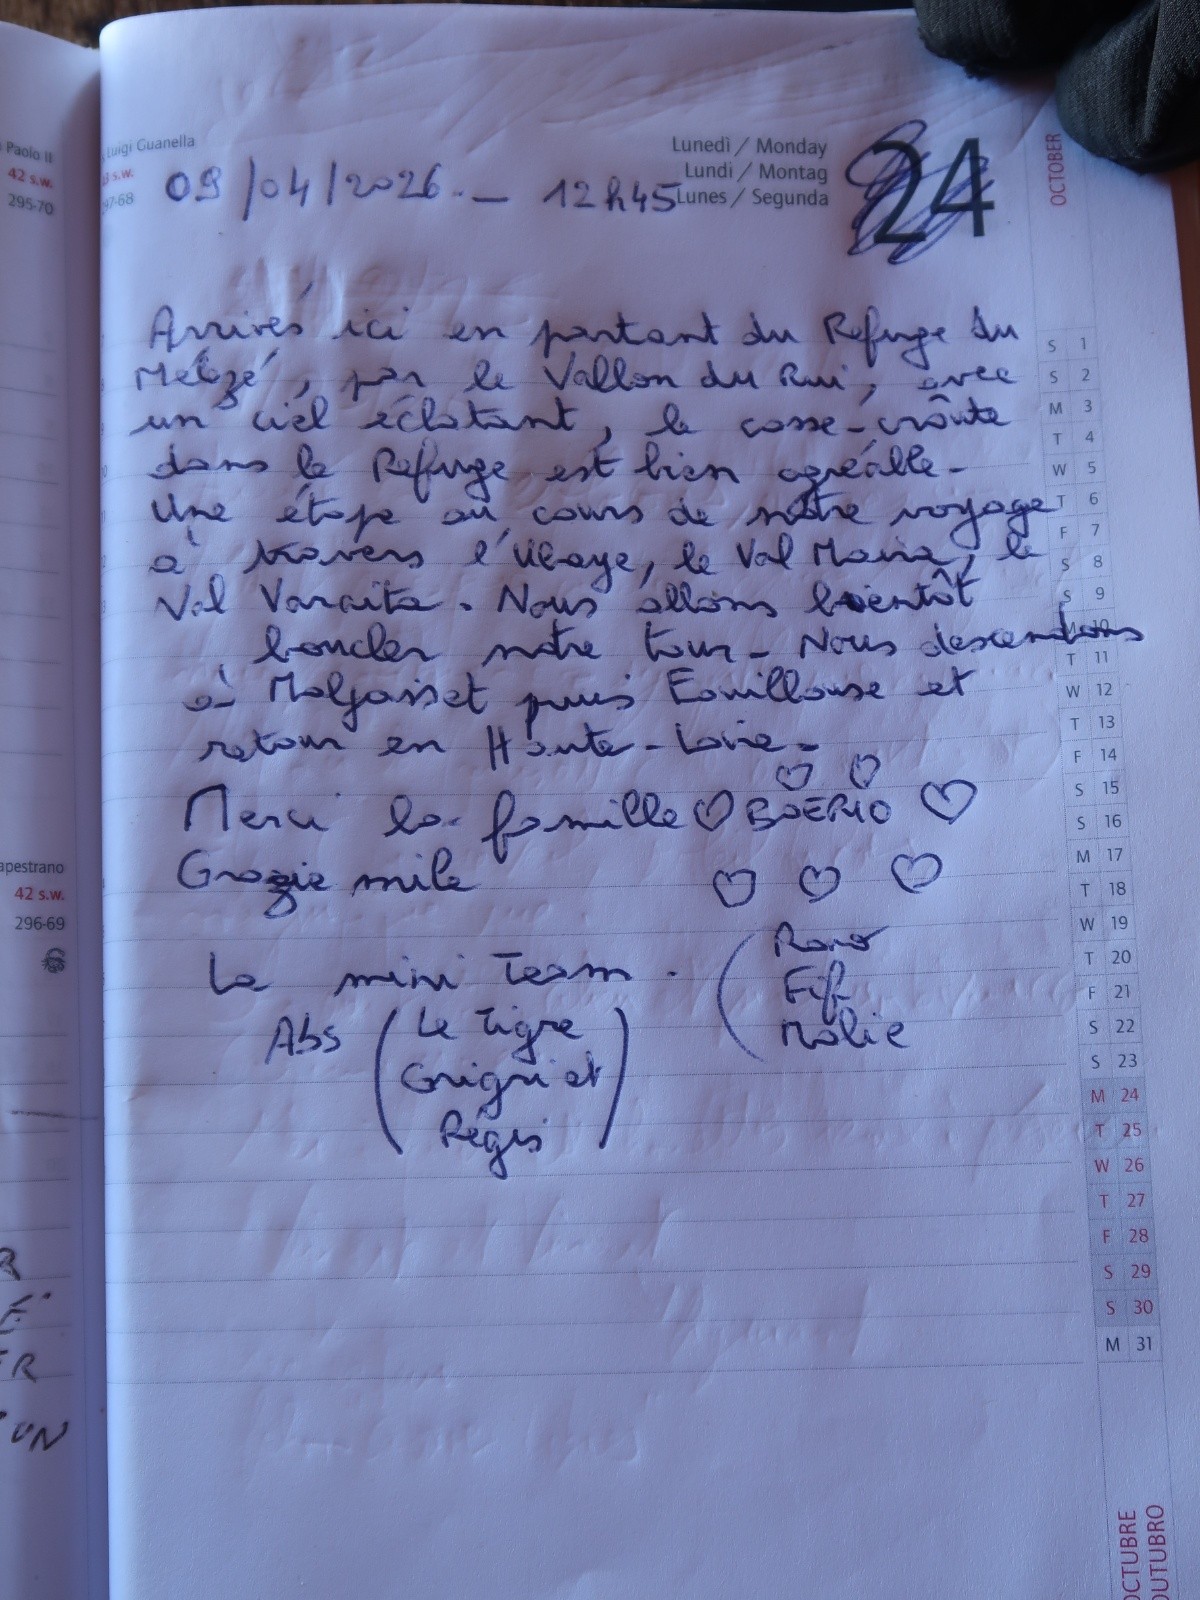 Paolo II
42 s.w.
295-70
Luigi Guanella
s.w.
97-68
Lunedì / Monday
Lundi / Montag
Lunes / Segunda
24
OCTOBER
09/04/2026. – 12h45
Arrivés ici en partant du Refuge du
Melezé, par le Vallon du Rui, avec
un ciel éclatant, le casse-croûte
dans le Refuge est bien agréable-
Une étape au cours de notre voyage
à travers l'Ubaye, le Val Maira, le
Val Varaita. Nous allons bientôt
boucler notre tour- Nous descendons
à Maljasset puis Fouillouse et
retour en Haute-Loire-
Merci la famille ♡ BOERIO ♡
Grazie mile ♡ ♡ ♡
La mini Team. (
Fif
Malie
Abs (Le Tigre
Grigri et
Régis)
S 1
S 2
M 3
T 4
W 5
T 6
F 7
S 8
S 9
M 10
T 11
W 12
T 13
F 14
S 15
S 16
M 17
T 18
W 19
T 20
F 21
S 22
S 23
M 24
T 25
W 26
T 27
F 28
S 29
S 30
M 31
apestrano
42 s.w.
296-69
R
ER
UN
OCTUBRE
OUTUBRO